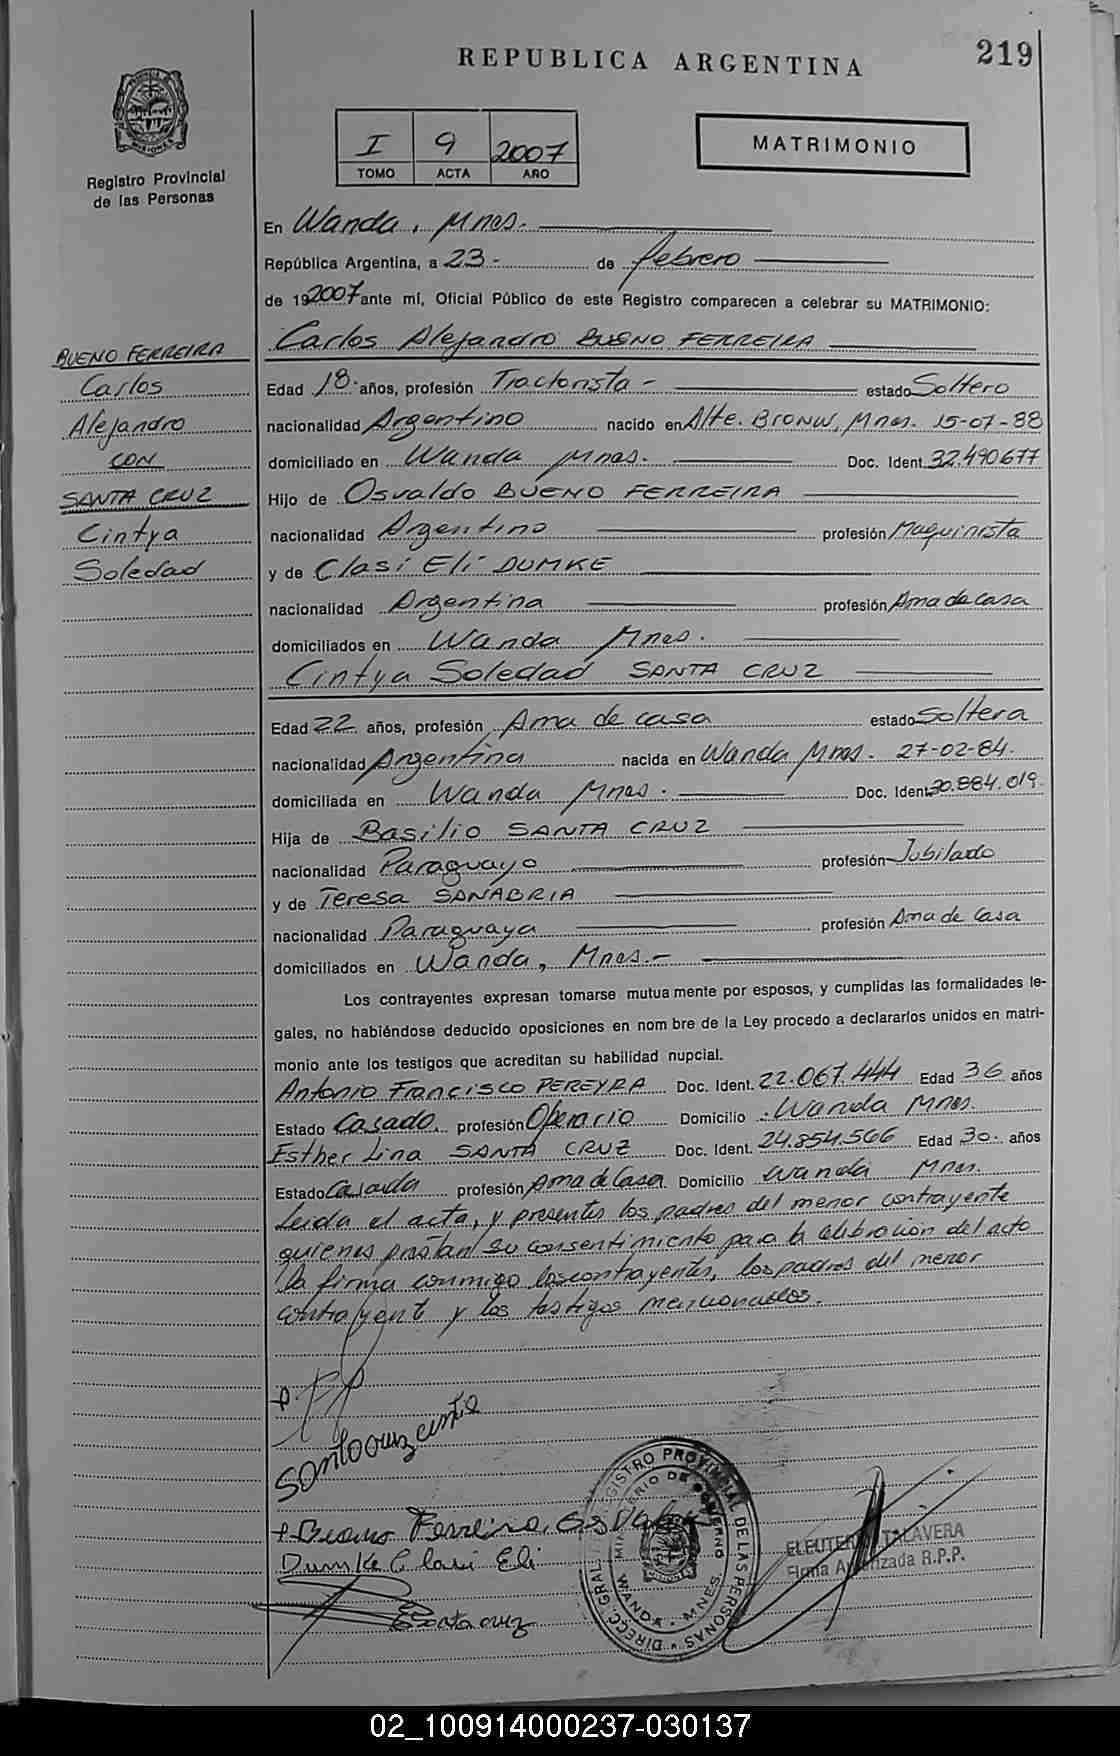 REPUBLICA ARGENTINA
219
Registro Provincial
de las Personas
I 9 2007
TOMO ACTA AÑO
MATRIMONIO
En Wanda, Mnes.
República Argentina, a 23 - de febrero
de 192007 ante mí, Oficial Público de este Registro comparecen a celebrar su MATRIMONIO:
Carlos Alejandro BUENO FERREIRA
BUENO FERREIRA
Carlos
Alejandro
CON
SANTA CRUZ
Cintya
Soledad
Edad 18. años, profesión Tractorista - estado Soltero
nacionalidad Argentino nacido en Alte. BRONW, Mnes. 15-07-88
domiciliado en Wanda Mnes. Doc. Ident. 32.490.677
Hijo de Osvaldo BUENO FERREIRA
nacionalidad Argentino profesión Maquinista
y de Clasi Eli DUMKE
nacionalidad Argentina profesión Ama de casa
domiciliados en Wanda Mnes.
Cintya Soledad SANTA CRUZ
Edad 22 años, profesión Ama de casa estado Soltera
nacionalidad Argentina nacida en Wanda Mnes. 27-02-84.
domiciliada en Wanda Mnes. Doc. Ident. 30.884.019.
Hija de Basilio SANTA CRUZ
nacionalidad Paraguayo profesión Jubilado
y de Teresa SANABRIA
nacionalidad Paraguaya profesión Ama de Casa
domiciliados en Wanda, Mnes.-
Los contrayentes expresan tomarse mutua mente por esposos, y cumplidas las formalidades le-
gales, no habiéndose deducido oposiciones en nom bre de la Ley procedo a declararlos unidos en matri-
monio ante los testigos que acreditan su habilidad nupcial.
Antonio Francisco PEREYRA Doc. Ident. 22.067.444 Edad 36 años
Estado Casado. profesión Operario Domicilio Wanda Mnes.
Esther Lina SANTA CRUZ Doc. Ident. 24.854.566 Edad 30. años
Estado Casada profesión Ama de Casa Domicilio Wanda Mnes.
Leida el acta, y presentes los padres del menor contrayente
quienes prestan su consentimiento para la celebracion del acto
la firma conmigo los contrayentes, los padres del menor
contrayente y los testigos mencionados.
Santa Cruz Cintia
Bueno Ferreira, Osvaldo
Dumke Clasi Eli
Santa cruz
DIRECC. GRAL. REGISTRO PROVINCIAL DE LAS PERSONAS
MINISTERIO DE GOBIERNO
WANDA - MNES.
ELEUTERIO TALAVERA
Firma Autorizada R.P.P.
02_100914000237-030137